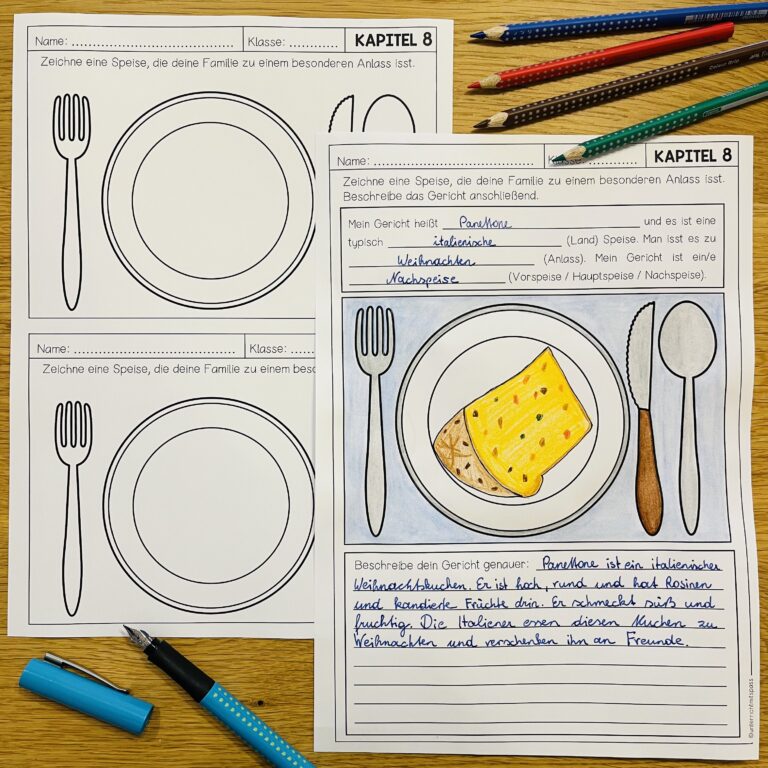 Name: ........................ Klasse: ............ KAPITEL 8
Zeichne eine Speise, die deine Familie zu einem besonderen Anlass isst.
Name: ........................ Klasse: .......
Zeichne eine Speise, die deine Familie zu einem
Name: ........................ Klasse: ............ KAPITEL 8
Zeichne eine Speise, die deine Familie zu einem besonderen Anlass isst.
Beschreibe das Gericht anschließend.
Mein Gericht heißt Panettone und es ist eine
typisch italienische (Land) Speise. Man isst es zu
Weihnachten (Anlass). Mein Gericht ist ein/e
Nachspeise (Vorspeise / Hauptspeise / Nachspeise).
Beschreibe dein Gericht genauer: Panettone ist ein italienischer
Weihnachtskuchen. Er ist hoch, rund und hat Rosinen
und kandierte Früchte drin. Er schmeckt süß und
fruchtig. Die Italiener essen diesen Kuchen zu
Weihnachten und verschenken ihn an Freunde.
©unterrichtmitspass